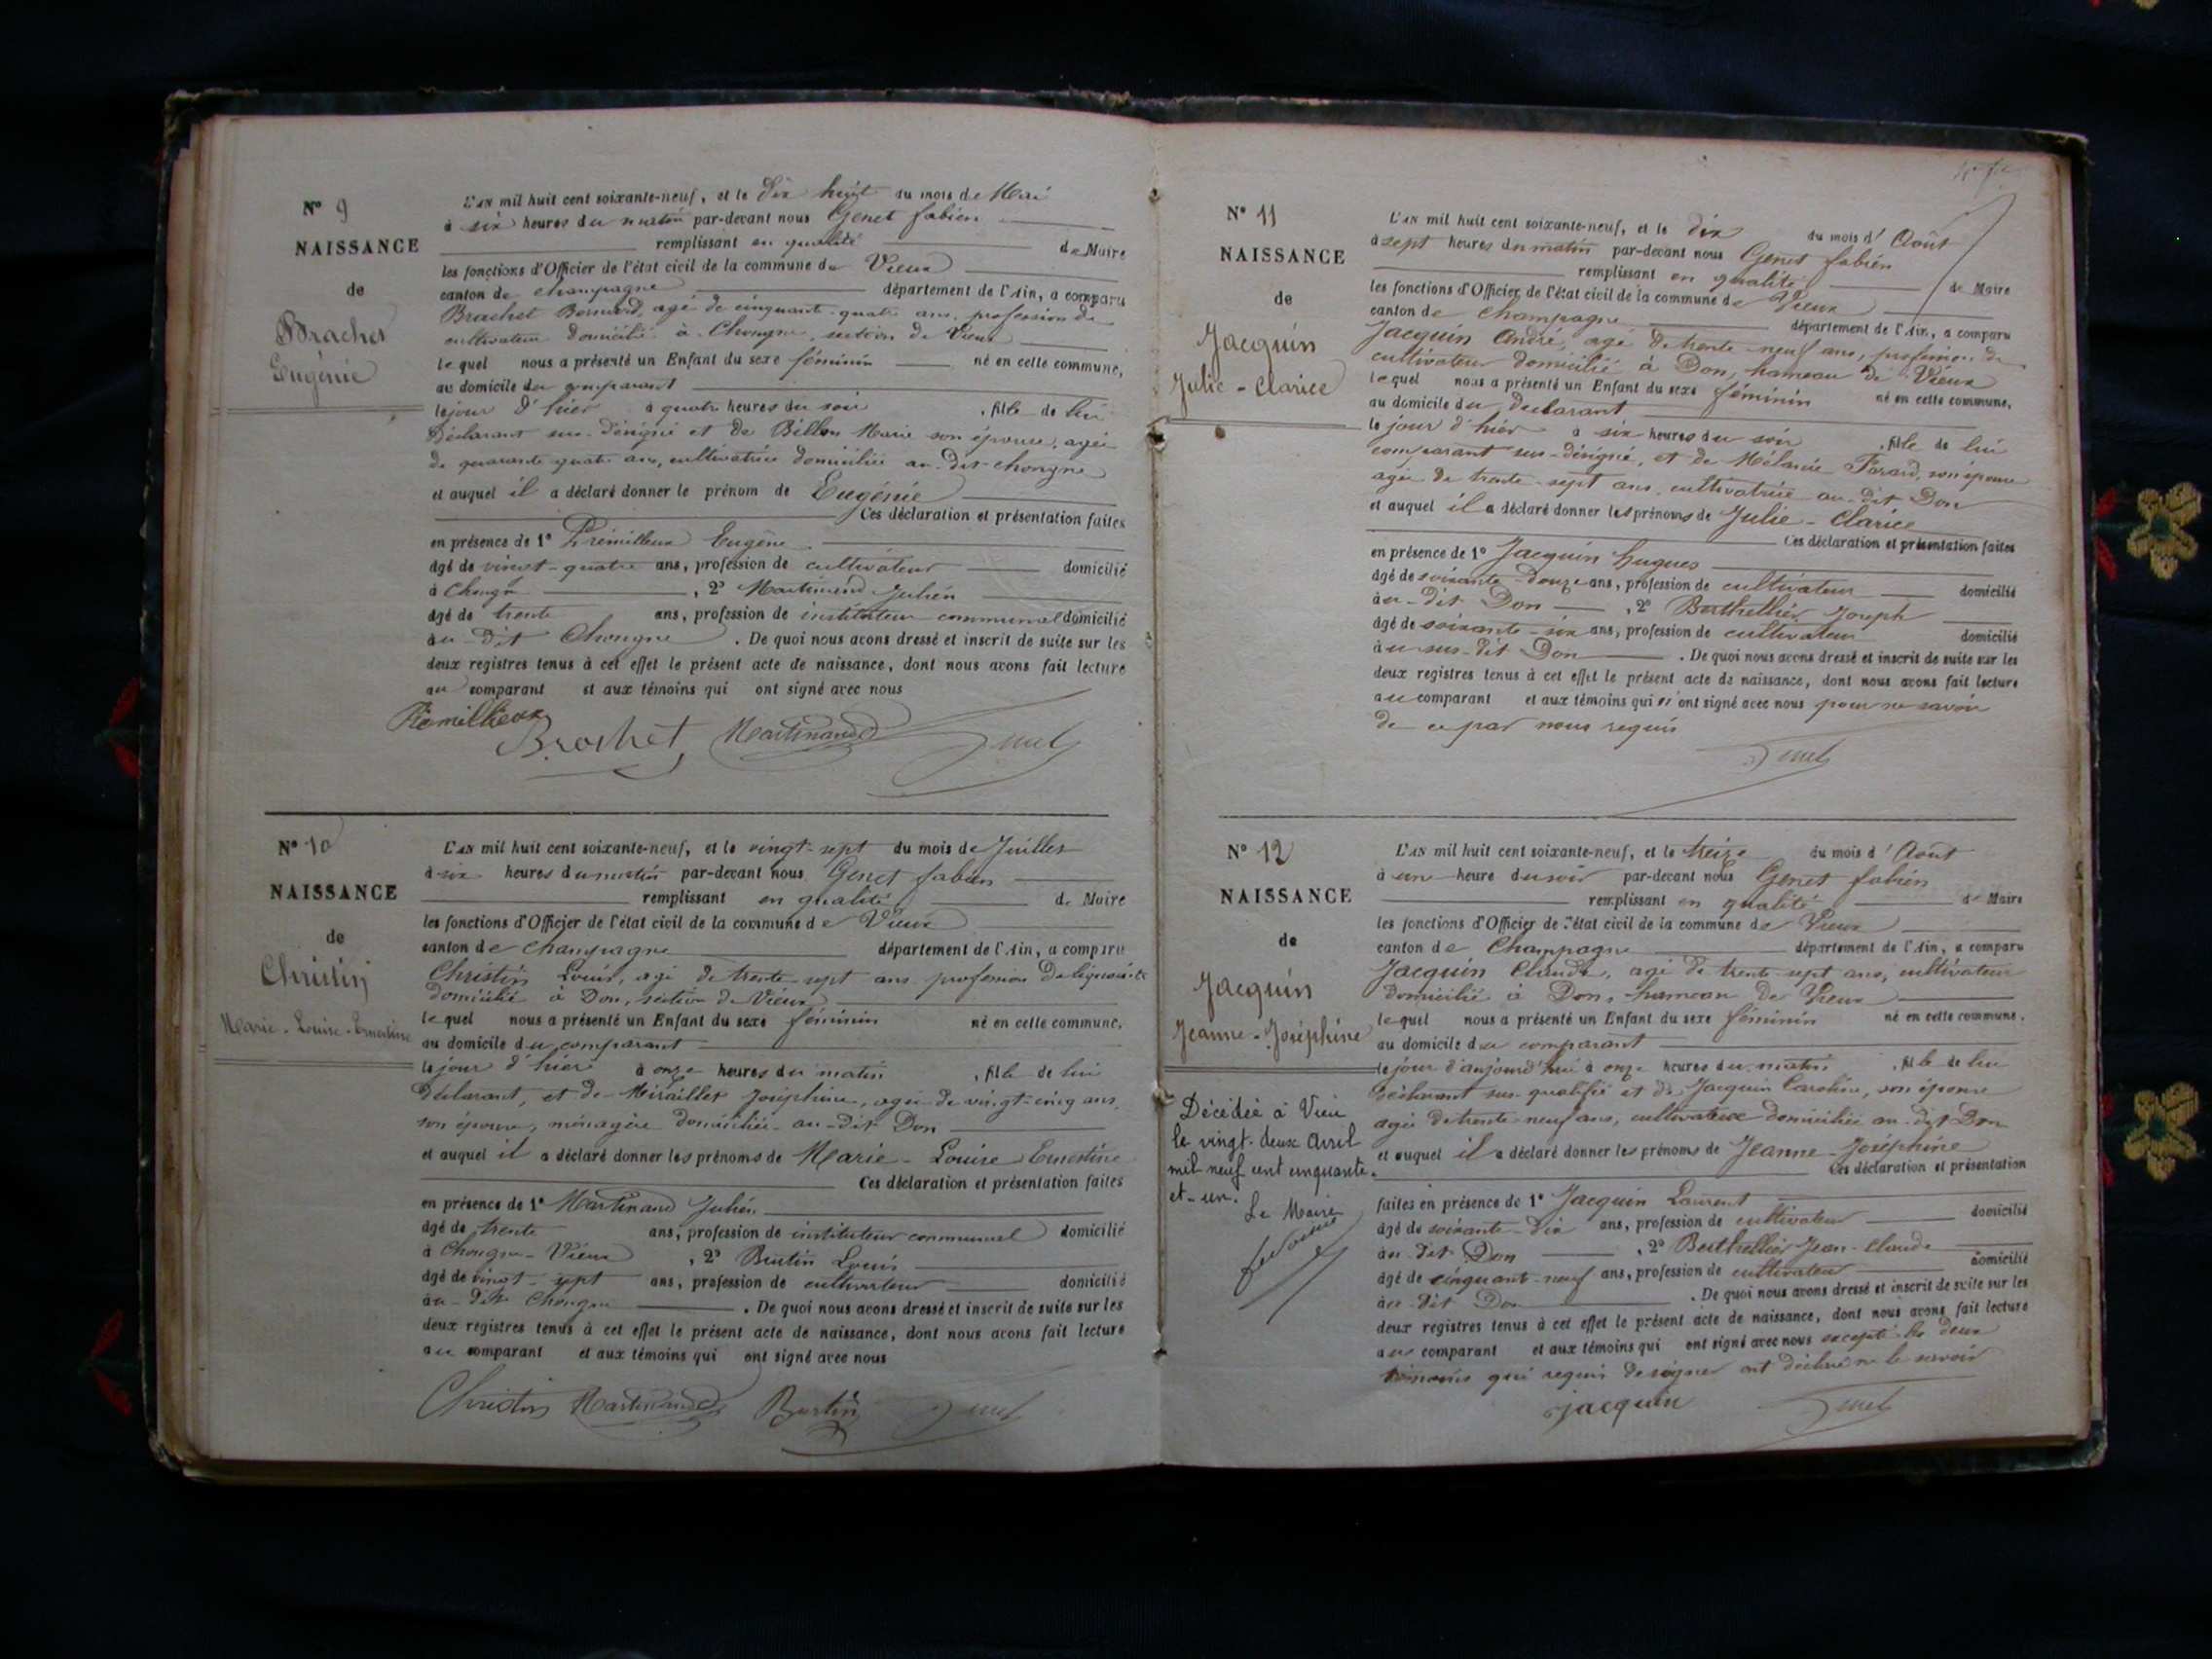 N° 9
NAISSANCE
de
Brachet
Eugénie
L'AN mil huit cent soixante-neuf, et le dix huit du mois de Mai
à six heures du matin par-devant nous Genet fabien
remplissant en qualité de Maire
les fonctions d'Officier de l'état civil de la commune de Vieux
canton de Champagne département de l'Ain, a comparu
Brachet Bernard, agé de cinquante-quatre ans, profession de
cultivateur domicilié à Chongne, section de Vieux
lequel nous a présenté un Enfant du sexe féminin né en cette commune,
au domicile du comparant
le jour d'hier à quatre heures du soir, fille de lui
Déclarant sus-désigné et de Billon Marie son épouse, agée
de quarante quatre ans, cultivatrice domiciliée au-dit Chongne
et auquel il a déclaré donner le prénom de Eugénie
Ces déclaration et présentation faites
en présence de 1° Prémilleux Eugène
âgé de vingt-quatre ans, profession de cultivateur domicilié
à Chongne, 2° Martinand Julien
âgé de trente ans, profession de instituteur communal domicilié
au-dit Chongne. De quoi nous avons dressé et inscrit de suite sur les
deux registres tenus à cet effet le présent acte de naissance, dont nous avons fait lecture
au comparant et aux témoins qui ont signé avec nous
Prémillieux
Brachet Martinand Genet
N° 10
NAISSANCE
de
Christin
Marie-Louise-Ernestine
L'AN mil huit cent soixante-neuf, et le vingt-sept du mois de Juillet
à six heures du matin par-devant nous Genet fabien
remplissant en qualité de Maire
les fonctions d'Officier de l'état civil de la commune de Vieux
canton de Champagne département de l'Ain, a comparu
Christin Louis, agé de trente-sept ans profession De liquoriste
domicilié à Don, section de Vieux
lequel nous a présenté un Enfant du sexe féminin né en cette commune,
au domicile du comparant
le jour d'hier à onze heures du matin, fille de lui
Déclarant, et de Mirailler Joséphine, agée de vingt-cinq ans,
son épouse, ménagère domiciliée au-dit Don
et auquel il a déclaré donner les prénoms de Marie-Louise Ernestine
Ces déclaration et présentation faites
en présence de 1° Martinand Julien
âgé de trente ans, profession de instituteur communal domicilié
à Chongne-Vieux, 2° Burtin Louis
âgé de vingt-sept ans, profession de cultivateur domicilié
au-dit Chongne. De quoi nous avons dressé et inscrit de suite sur les
deux registres tenus à cet effet le présent acte de naissance, dont nous avons fait lecture
au comparant et aux témoins qui ont signé avec nous
Christin Martinand Burtin Genet
N° 11
NAISSANCE
de
Jacquin
Julie-Clarice
L'AN mil huit cent soixante-neuf, et le dix du mois d'Août
à sept heures du matin par-devant nous Genet fabien
remplissant en qualité de Maire
les fonctions d'Officier de l'état civil de la commune de Vieux
canton de Champagne département de l'Ain, a comparu
Jacquin André, agé de trente-neuf ans, profession de
cultivateur domicilié à Don, hameau de Vieux
lequel nous a présenté un Enfant du sexe féminin né en cette commune,
au domicile du declarant
le jour d'hier à six heures du soir, fille de lui
comparant sus-désigné, et de Mélanie Favard, son épouse
agée de trente-sept ans, cultivatrice au-dit Don
et auquel il a déclaré donner les prénoms de Julie-Clarice
Ces déclaration et présentation faites
en présence de 1° Jacquin hugues
âgé de soixante-douze ans, profession de cultivateur domicilié
au-dit Don, 2° Berthellier Joseph
âgé de soixante-six ans, profession de cultivateur domicilié
au sus-dit Don. De quoi nous avons dressé et inscrit de suite sur les
deux registres tenus à cet effet le présent acte de naissance, dont nous avons fait lecture
au comparant et aux témoins qui n'ont signé avec nous pour ne savoir
de ce par nous requis
Genet
N° 12
NAISSANCE
de
Jacquin
Jeanne-Joséphine
Décédée à Vieu
le vingt-deux Avril
mil neuf cent cinquante-
et-un.
Le Maire
L'AN mil huit cent soixante-neuf, et le treize du mois d'Août
à une heure du soir par-devant nous Genet fabien
remplissant en qualité de Maire
les fonctions d'Officier de l'état civil de la commune de Vieux
canton de Champagne département de l'Ain, a comparu
Jacquin Claude, agé de trente-sept ans, cultivateur
domicilié à Don, hameau de Vieux
lequel nous a présenté un Enfant du sexe féminin né en cette commune,
au domicile du comparant
le jour d'aujourd'hui à onze heures du matin, fille de lui
déclarant sus-qualifié et de Jacquin Caroline, son épouse
agée de trente-neuf ans, cultivatrice domiciliée au-dit Don
et auquel il a déclaré donner les prénoms de Jeanne-Joséphine
Ces déclaration et présentation
faites en présence de 1° Jacquin Laurent
âgé de soixante-dix ans, profession de cultivateur domicilié
au dit Don, 2° Berthellier Jean-Claude
âgé de cinquant-neuf ans, profession de cultivateur domicilié
au-dit Don. De quoi nous avons dressé et inscrit de suite sur les
deux registres tenus à cet effet le présent acte de naissance, dont nous avons fait lecture
au comparant et aux témoins qui ont signé avec nous excepté les deux
témoins qui requis de signer ont déclaré ne le savoir
jacquin Genet